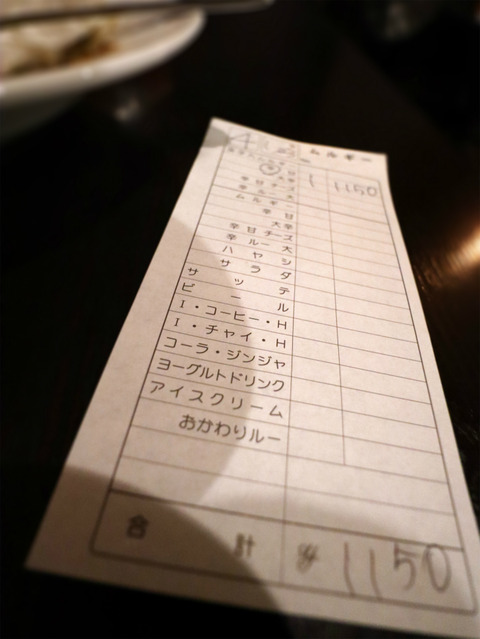 ムルギー
1 1150
辛 日 チーズ
辛 ルー 大
ムルギー
辛 日
大辛
辛 日 チーズ
辛 ルー 大
ハヤシ
サラダ
サッテ
ビール
I・コーヒー・H
I・チャイ・H
コーラ・ジンジャ
ヨーグルトドリンク
アイスクリーム
おかわりルー
合計 ¥1150